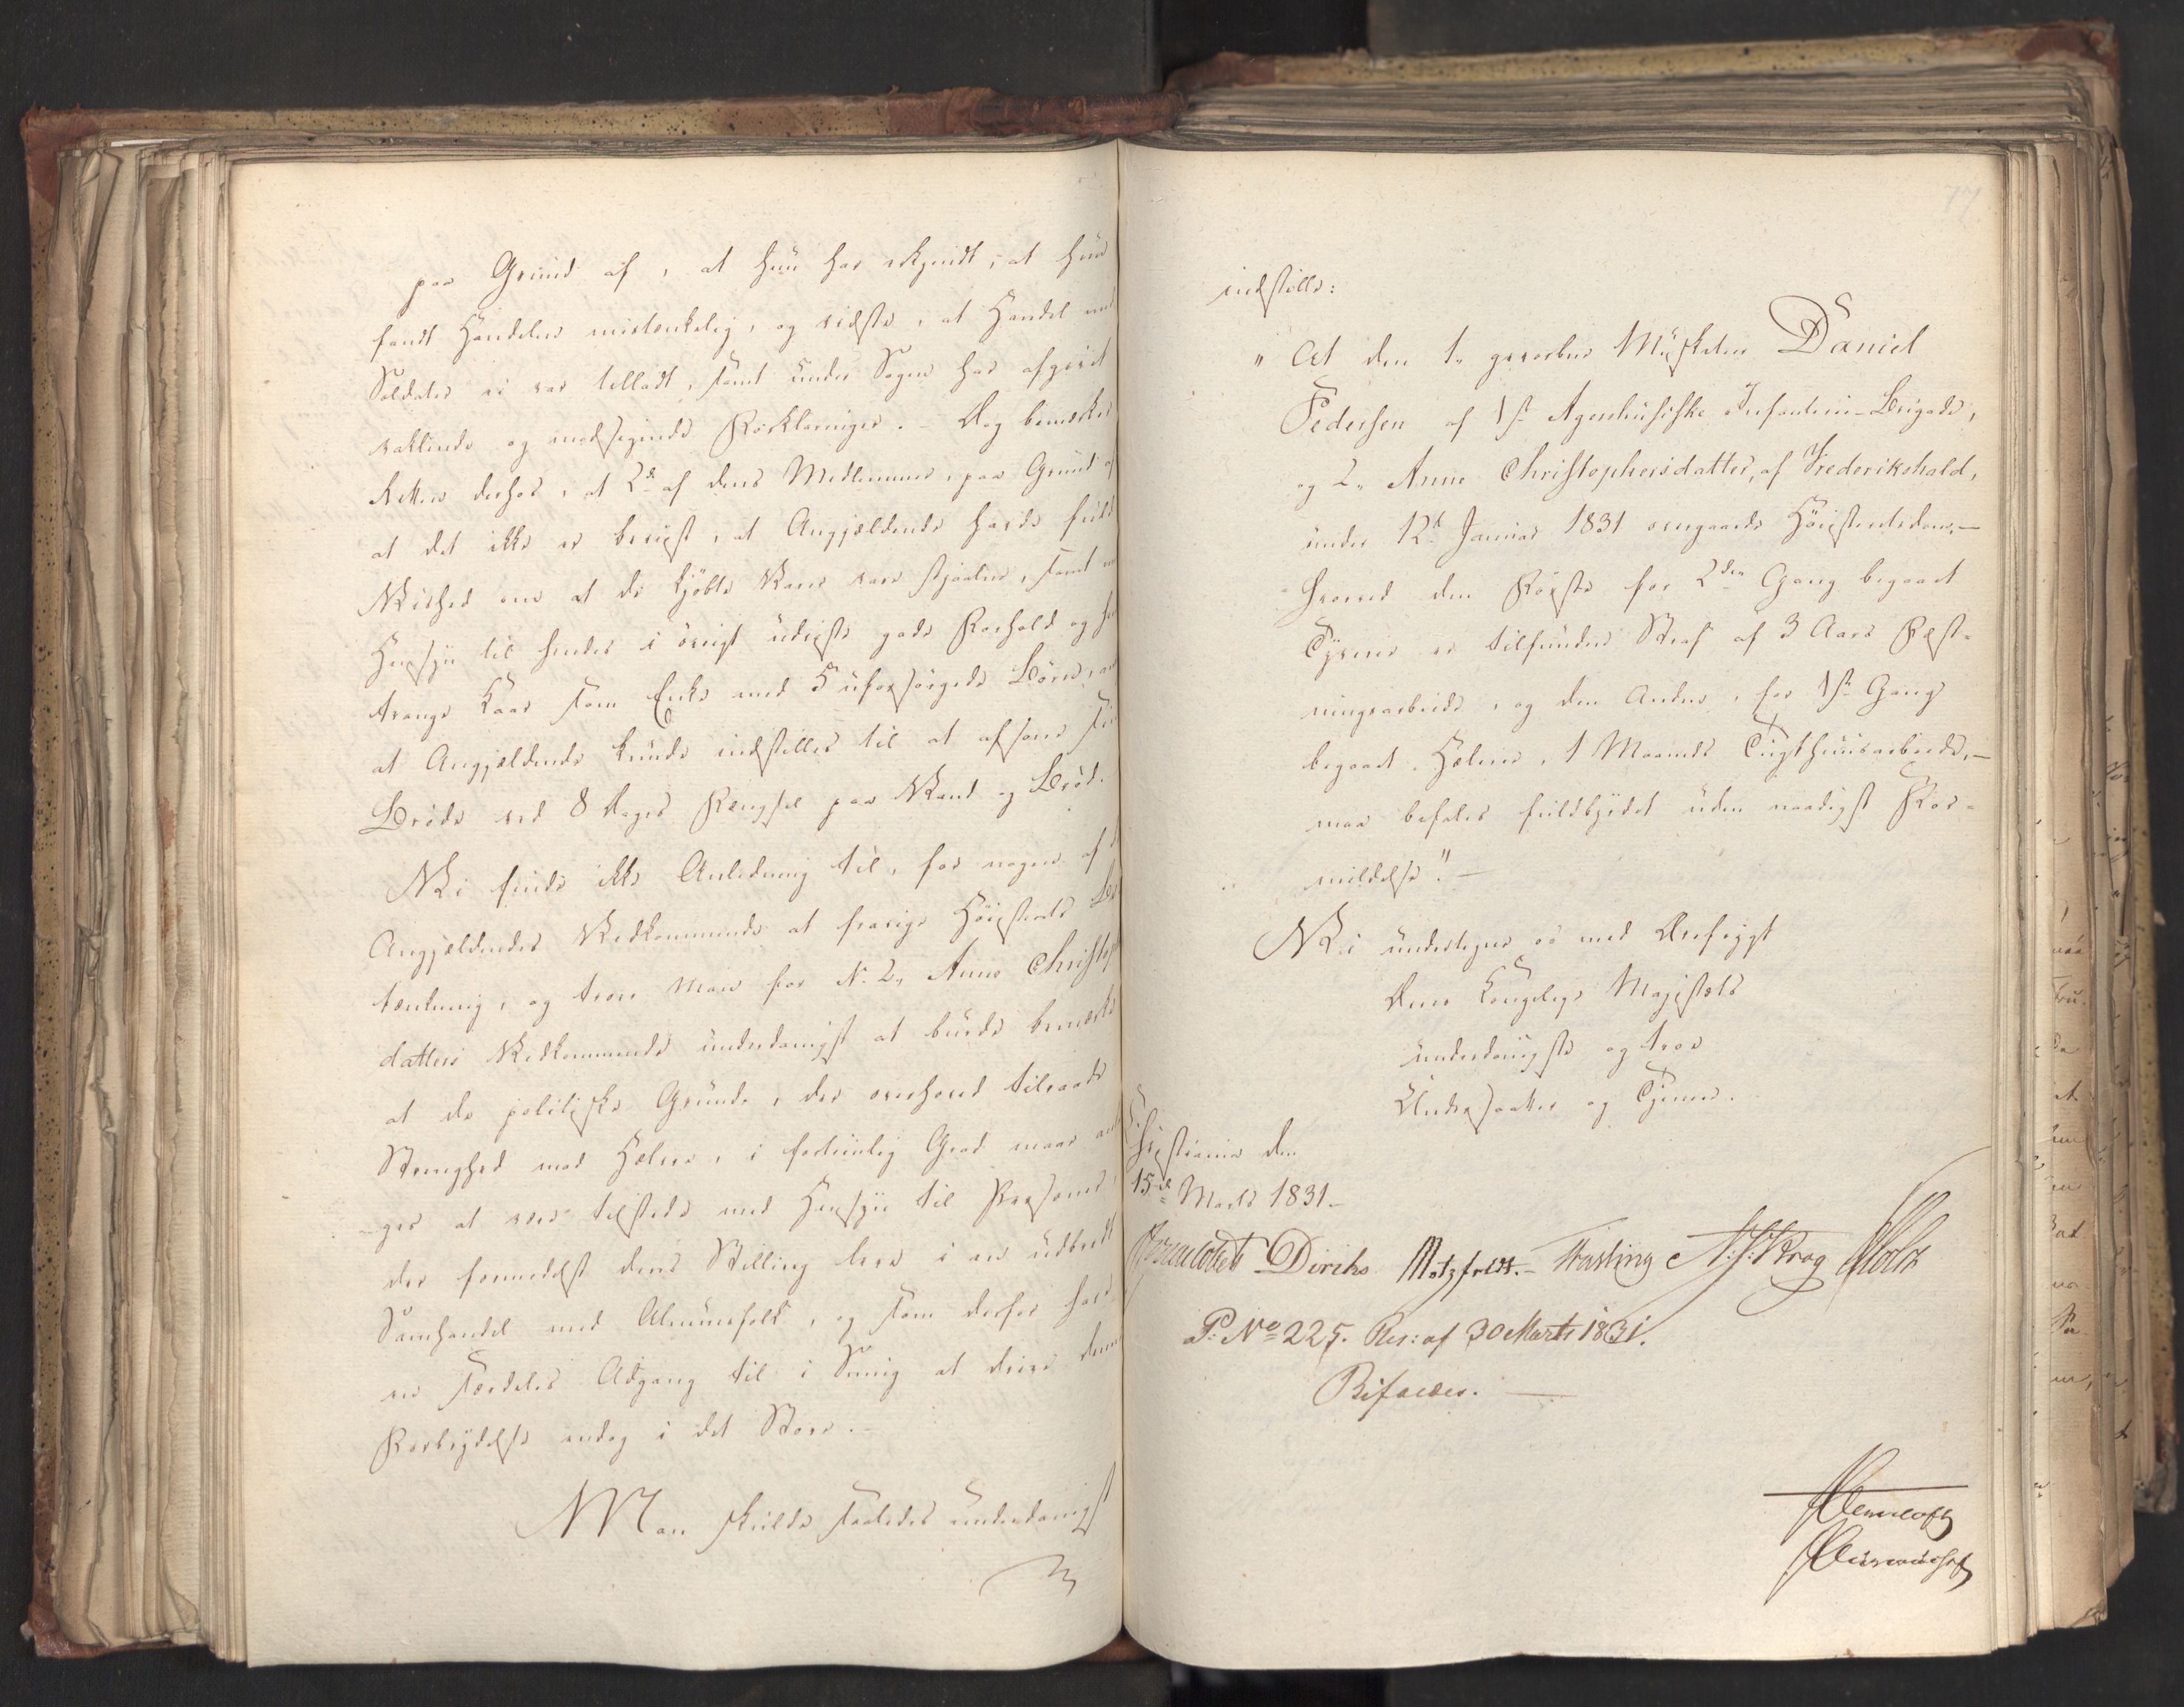 paa Grund af, at hun har erkjendt, at hun
fandt Handelen mistenkelig, og vidste, at Handel med
Soldater ei var tilladt, samt under Sagen har afgivet
vaklende og modsigende Forklaringer. – Dog bemærker
Retten derhos, at 2de af dens Medlemmer, paa Grund af
at det ikke er beviist, at Angjældende havde fuld
Vished om at de kjøbte Varer vare stjaalne, samt med
Hensyn til hendes i øvrigt udviste gode Forhold og
trange Kaar som Enke med 5 uforsørgede Børn,
at Angjældende kunde indstilles til at afsone sin
Brøde ved 8 Dages Fængsel paa Vand og Brød.
Vi finde ikke Anledning til, for nogen af
Angjældendes Vedkommende at fravige Høiesterets Be
tænkning, og troer man for N. 2, Anne Christophers
datters Vedkommende underdanigst at burde bemærke
at de politiske Grunde, der overhoved tilraade
Strenghed mod Hælere, i fortrinlig Grad maae an
ges at være tilstede med Hensyn til Personer,
der formedelst deres Stilling leve i en udbredt
Samhandel med Almuesfolk, og som derfor have
en særdeles Adgang til i Smug at drive denne
Forbrydelse endog i det Store. –
Man skulde saaledes underdanigst
77
indstille:
" At den 1, gevorbne Musketeer Daniel
Pedersen af 1ste Agershusiske Infanterie-Brigade,
og 2, Anne Christophersdatter, af Frederikshald,
under 12te Januar 1831 overgaaede Høiesteretsdom, –
hvorved den Første for 2den Gang begaaet
Tyverie er tilfunden Straf af 3 Aars Fæst-
ningsarbeide, og den Anden, for 1ste Gang
begaaet Hælerie, 1 Maaneds Tugthuusarbeide, –
maa befales fuldbyrdet uden naadigst For-
mildelse." –
Vi undertegne os med Ærefrygt
Deres Kongelige Majestæts
underdanigste og troe
Undersaatter og Tjenere.
Christiania den
15de Marts 1831. –
Diriks Motzfeldt. – Fasting Krog Holst
P: No 225. Res: af 30 Marts 1831.
Bifaldes. –